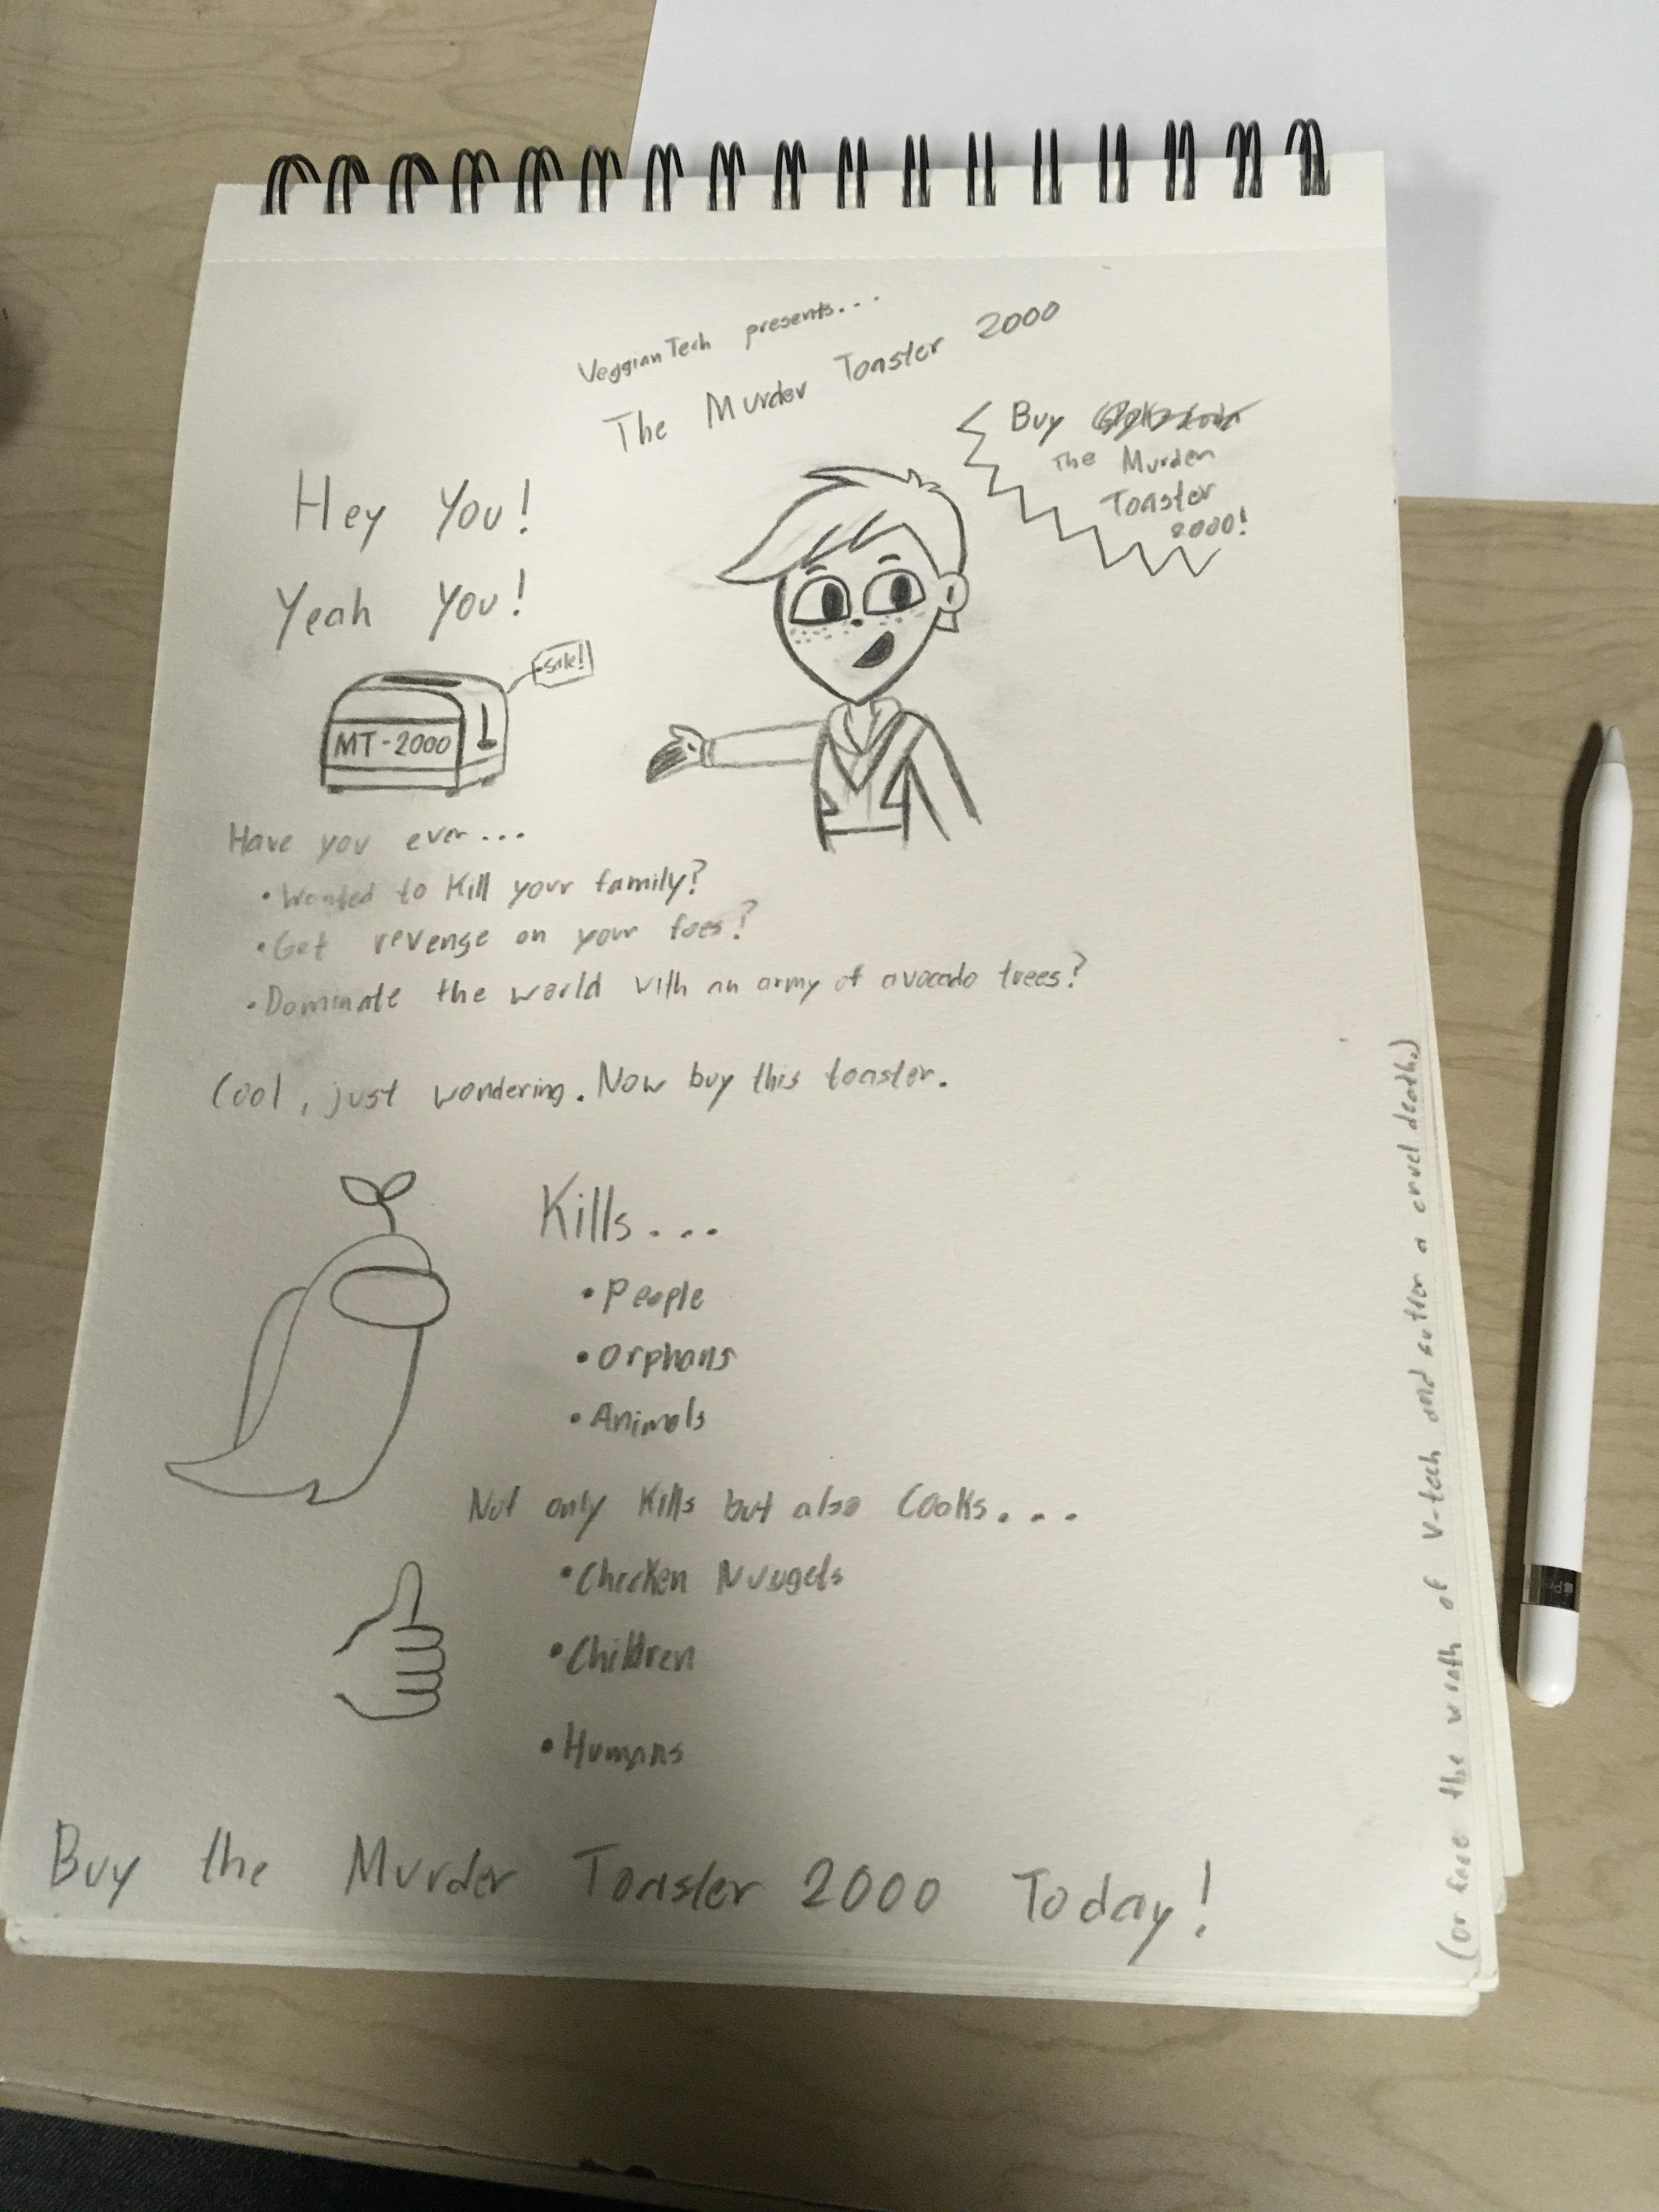 VeggianTech presents...
The Murder Toaster 2000
Buy
The Murder
Toaster
2000!
Hey You!
Yeah You!
Sale!
MT-2000
Have you ever...
• Wanted to Kill your family?
• Get revenge on your foes?
• Dominate the world with an army of avocado trees?
Cool, just wondering. Now buy this toaster.
Kills...
• People
• Orphans
• Animals
Not only Kills but also Cooks...
• Chicken Nuggets
• Children
• Humans
Buy the Murder Toaster 2000 Today!
(or face the wrath of V-tech and suffer a cruel death.)